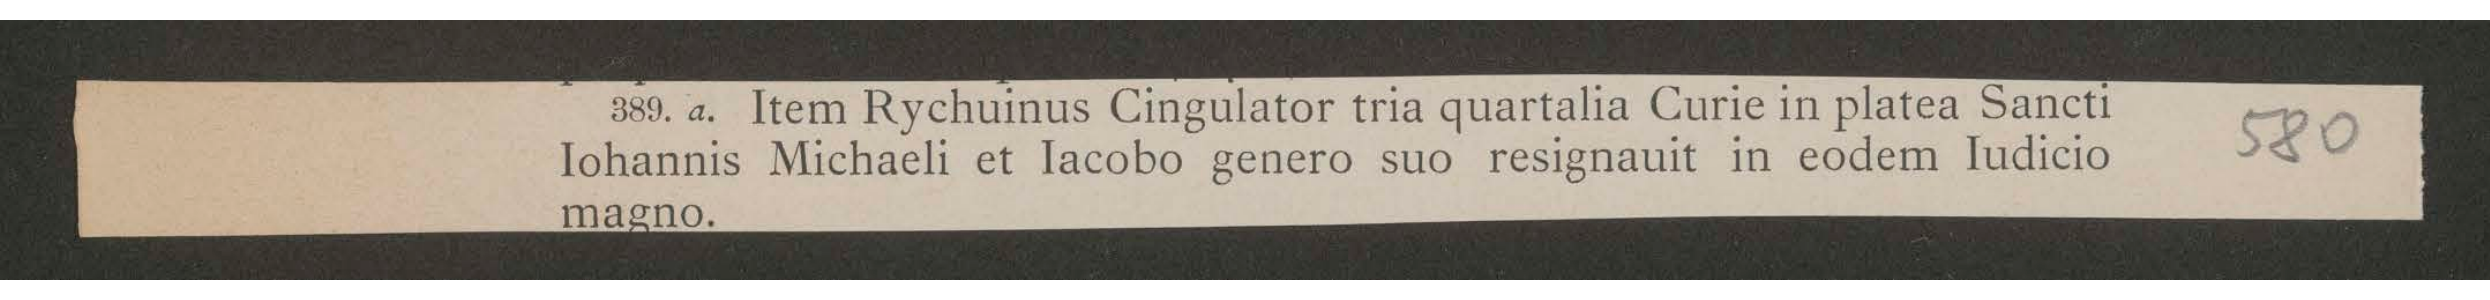 389. a. Item Rychuinus Cingulator tria quartalia Curie in platea Sancti
Iohannis Michaeli et Iacobo genero suo resignauit in eodem Iudicio
magno.
580